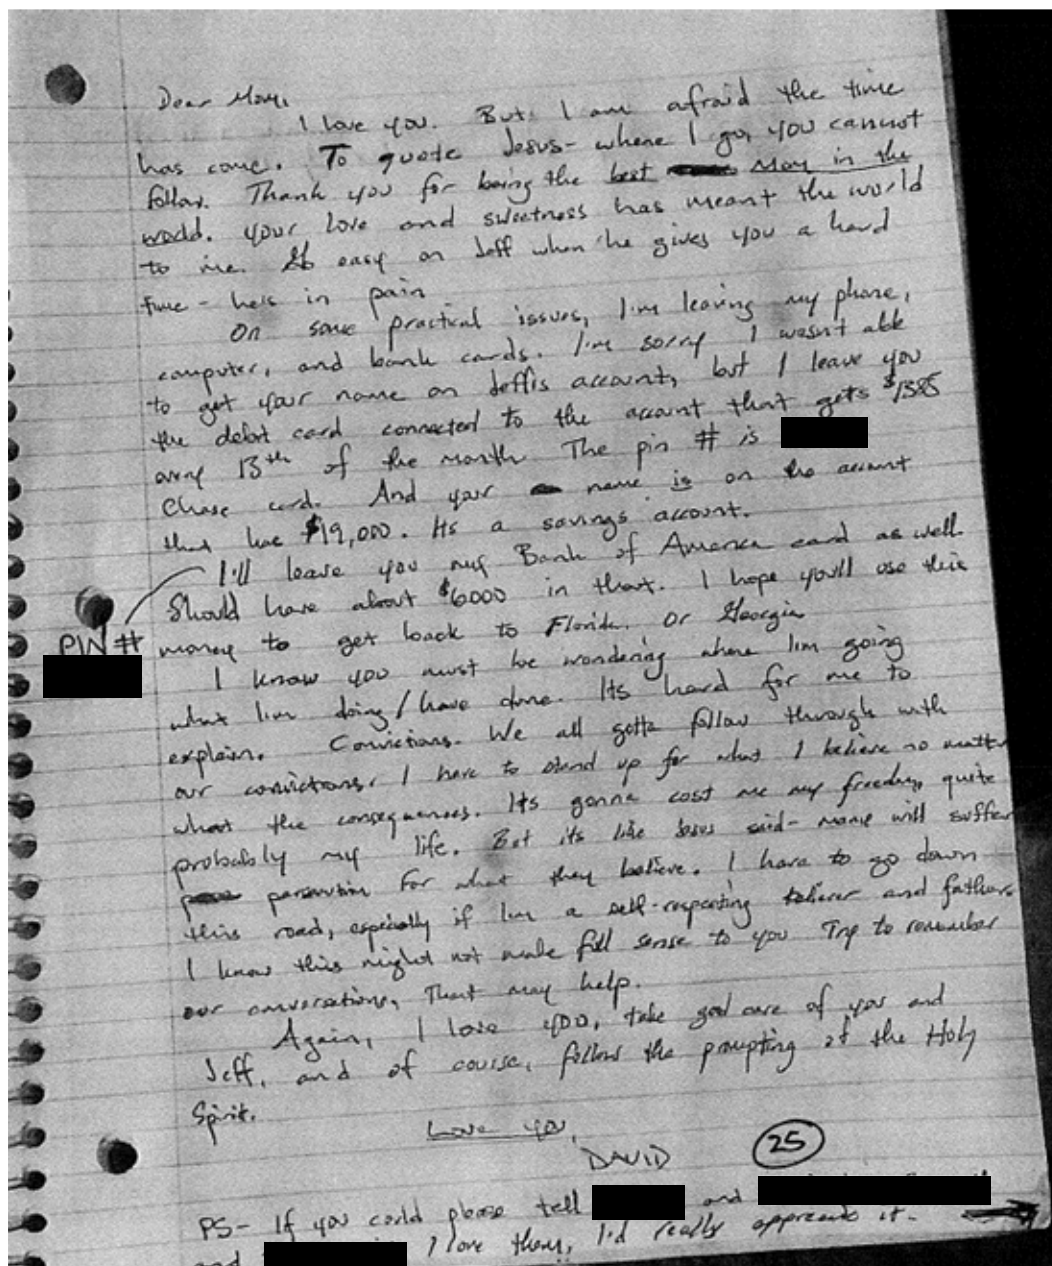 Dear Mom,
I love you. But I am afraid the time
has come. To quote Jesus- where I go, you cannot
follow. Thank you for being the best Mom in the
world. your love and sweetness has meant the world
to me. Go easy on Jeff when he gives you a hard
time - he's in pain
On some practical issues, I'm leaving my phone,
computer, and bank cards. I'm sorry I wasn't able
to get your name on Jeff's account, but I leave you
the debit card connected to the account that gets $1385
every 13th of the month. The pin # is
Chase card. And your name is on the account
that has $19,000. Its a savings account.
I'll leave you my Bank of America card as well.
Should have about $6000 in that. I hope you'll use this
PIN #
money to get back to Florida. Or Georgia
I know you must be wondering where I'm going
what I'm doing/have done. Its hard for me to
explain. Convictions. We all gotta follow through with
our convictions. I have to stand up for what I believe no matter
what the consequences. Its gonna cost me my freedom, quite
probably my life. But its like Jesus said- many will suffer
persecution for what they believe. I have to go down
this road, especially if I'm a self-respecting believer and father.
I know this might not make full sense to you Try to remember
our conversations, That may help.
Again, I love you, take good care of you and
Jeff, and of course, follow the prompting of the Holy
Spirit.
Love you,
DAVID
25
PS- If you could please tell and
and I love them, I'd really appreciate it.